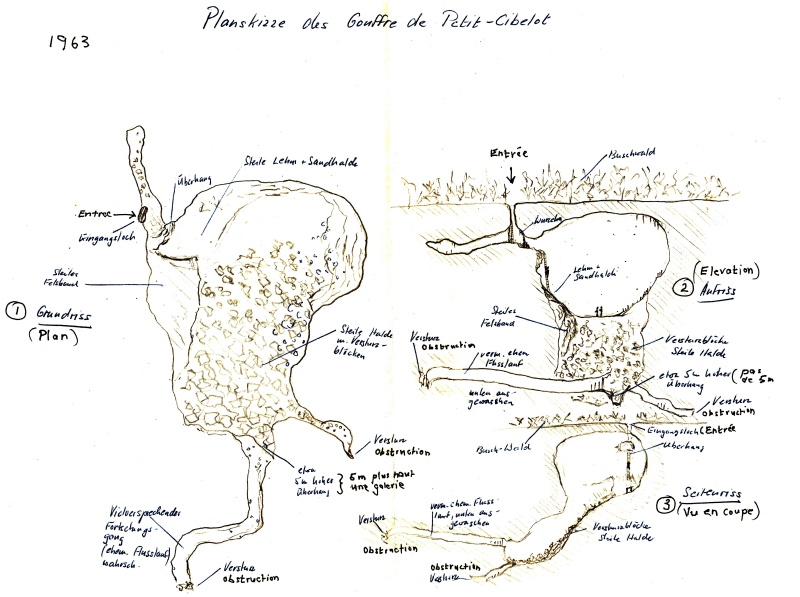 Planskizze des Gouffre de Petit-Cibelot
1963
Steile Lehm + Sandhalde
Überhang
Entree
Eingangsloch
Steiles
Felsband
① Grundriss
(Plan)
Steile Halde
m. Versturz-
blöcken
Versturz
Obstruction
etwa
5m hoher
Überhang
5m plus haut
une galerie
Vielversprechender
Forschungs-
gang
(ehem. Flusslauf)
wahrsch.
Versturz
Obstruction
Entrée
Buschwald
Lehm +
Sandhalde
(Elevation)
② Aufriss
Steiles
Felsband
Versturz
Obstruction
verm. ehem.
Flusslauf
unten aus-
gewaschen
Versturzblöcke
Steile Halde
etwa 5m hoher
Überhang
(pas
de 5m
Versturz
Obstruction
Busch-Wald
Eingangsloch (Entrée
Überhang
③ Seitenriss
(Vu en coupe)
verm. ehem. Fluss
lauf, unten aus-
gewaschen
Versturz
Obstruction
Versturzblöcke
steile Halde
Obstruction
Versturz